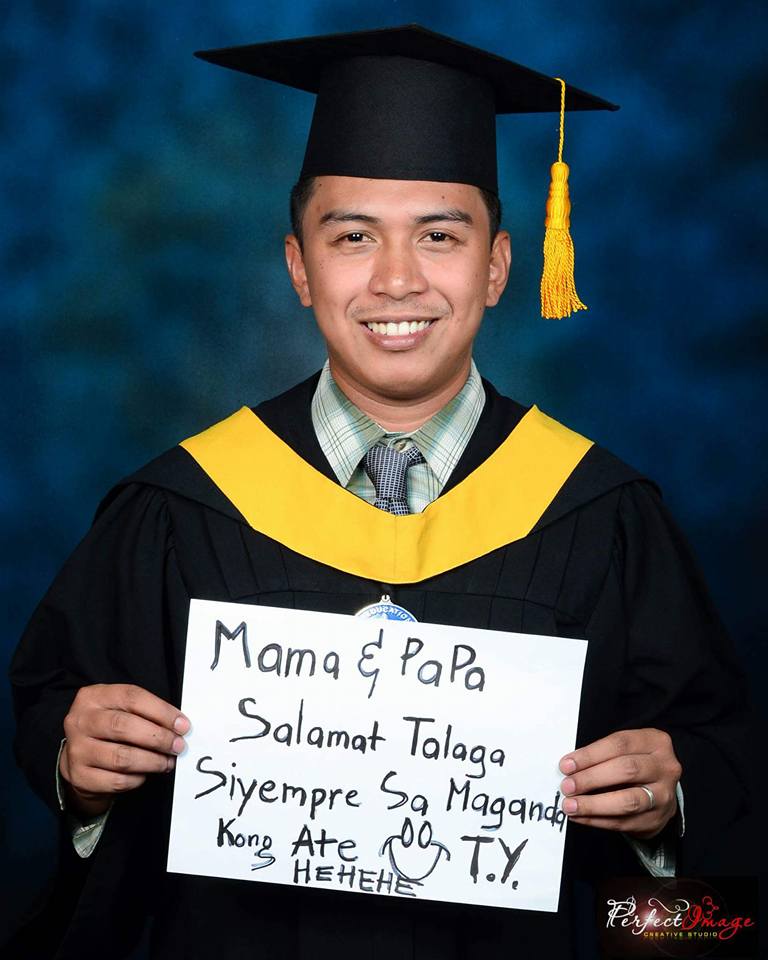 EDUCATION
Mama & PaPa
Salamat Talaga
Siyempre Sa Maganda
Kong Ate T.Y.
HEHEHE
Perfect Image
CREATIVE STUDIO